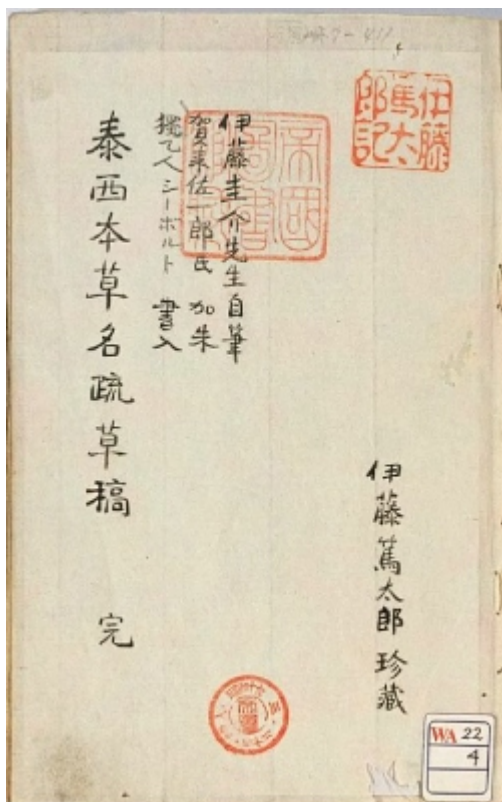 伊藤篤太郎記
伊藤篤太郎珍蔵
帝國
圖書
伊藤圭介先生自筆
賀来佐一郎氏 加朱
獨乙人シーボルト 書入
泰西本草名疏草稿 完
WA 22
4